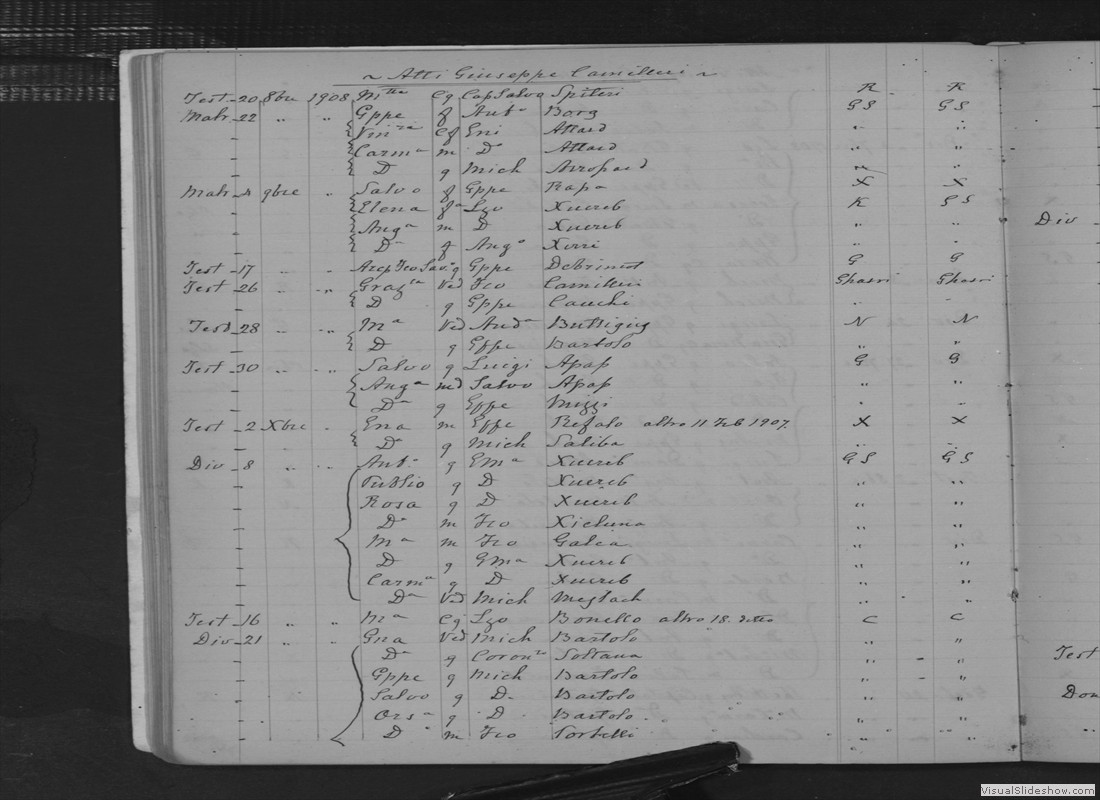 ~ Atti Giuseppe Camilleri ~
Test 20 8bre 1908 Cg Cap Salvo Spiteri R R
Matr 22 " " Gppe f Anto Borg GS GS
Cg Attard " "
Carma m D Attard " "
D g Mich "
Matr 9bre " Salvo f Gppe Rapa X X
Elena fa Lzo Xuereb R GS
Anga m D Xuereb " "
Da f Ango Xerri " "
Test 17 " " g Gppe Debrincat G G
Test 26 " " Ved Fco Camilleri Ghasri Ghasri
D g Gppe Cauchi " "
Test 28 " " Ma Ved Buttigieg N N
D g Gppe Bartolo " "
Test 30 " " Salvo g Luigi Apap G G
Anga Salvo Apap " "
Da g Gppe Mizzi " "
Test 2 Xbre " m Gppe Refalo altro 11 Feb 1907. X X
Da g Mich Saliba " "
Div 8 " " Anto g Xuereb GS GS
Publio g D Xuereb " "
Rosa g D Xuereb " "
Da m Fco Xicluna " "
Ma m Fco Galea " "
D g Xuereb " "
Carma g D Xuereb " "
Da Ved Mich Meylach " "
Test 16 " " Ma Cg Lzo Bonello altro 18. detto C C
Div 21 " " Ved Mich Bartolo " "
Da g Soltana " "
Gppe g Mich Bartolo " "
Salvo g D Bartolo " "
Orsa g D Bartolo " "
D m Fco " "
Div
Test
Don
VisualSlideshow.com